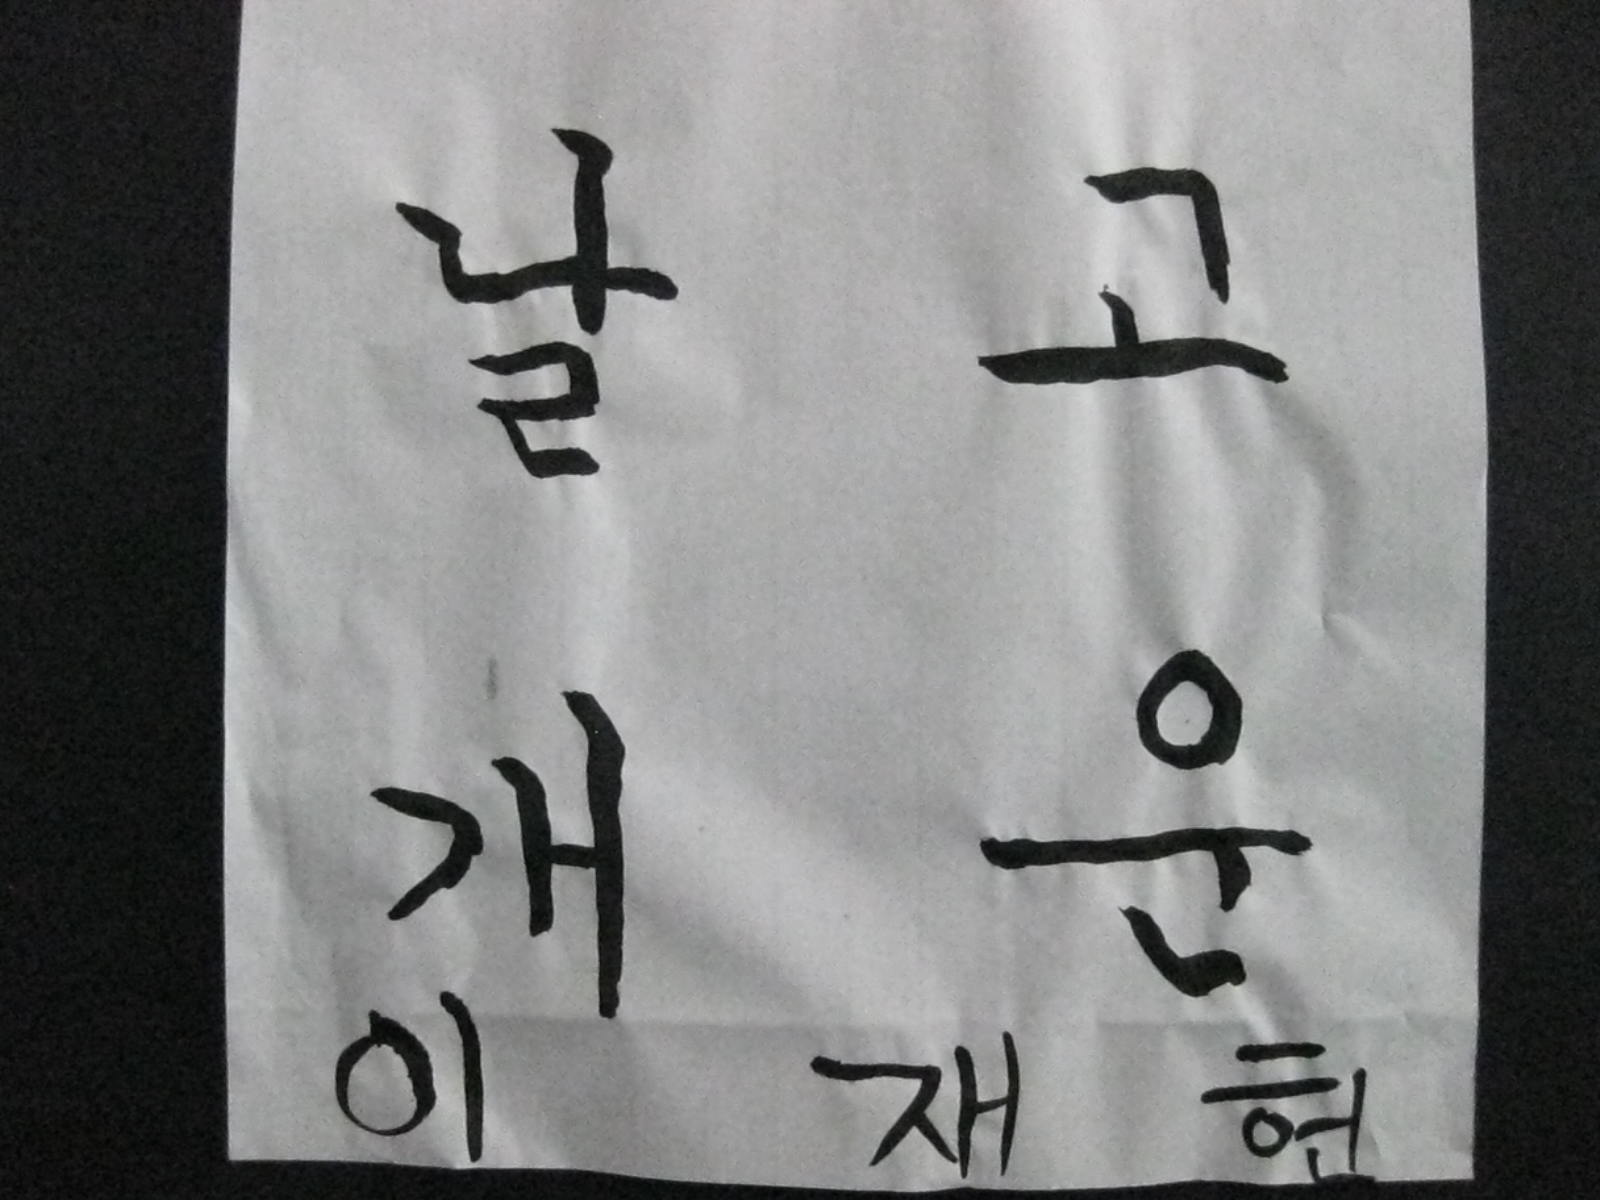 고운
날개
이재현